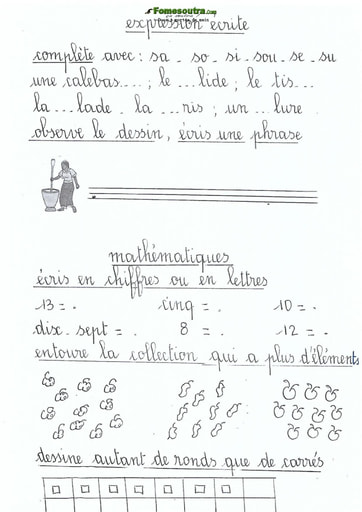 Fomesoutra.com
expression écrite
complète avec : sa - so - si - sou - se - su
une calebas.... ; le ...lide ; le tis...
la ...lade . la ...ris ; un ...lure
observe le dessin, écris une phrase
mathématiques
écris en chiffres ou en lettres
13 = . cinq = . 10 = .
dix-sept = . 8 = . 12 = .
entoure la collection qui a plus d'éléments
dessine autant de ronds que de carrés